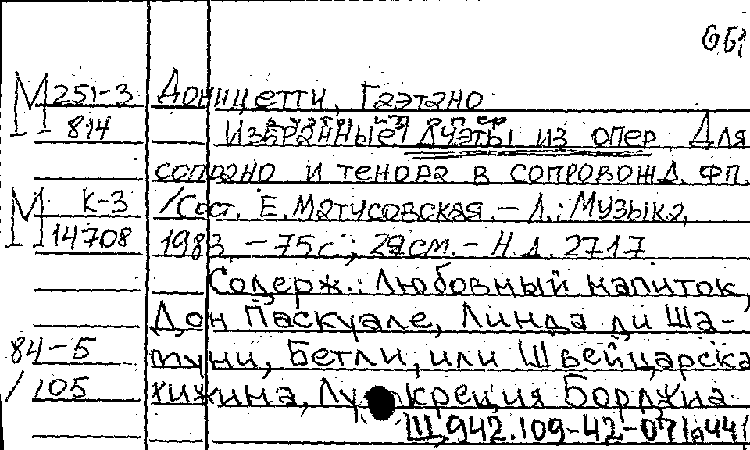 М 251-3 Доницетти, Гаэтано
814 Избранные дуэты из опер Для
сопрано и тенора в сопровожд. фп.
М К-3 /Сост. Е. Матусовская. – Л.: Музыка,
14708 1983. – 75 с.; 29 см. – Н.д. 2717
Содерж.: Любовный напиток,
Дон Паскуале, Линда ди Ша-
84-5 муни, Бетли, или Швейцарска
/105 хижина, Лукреция Борджиа
Щ942.109-42-07